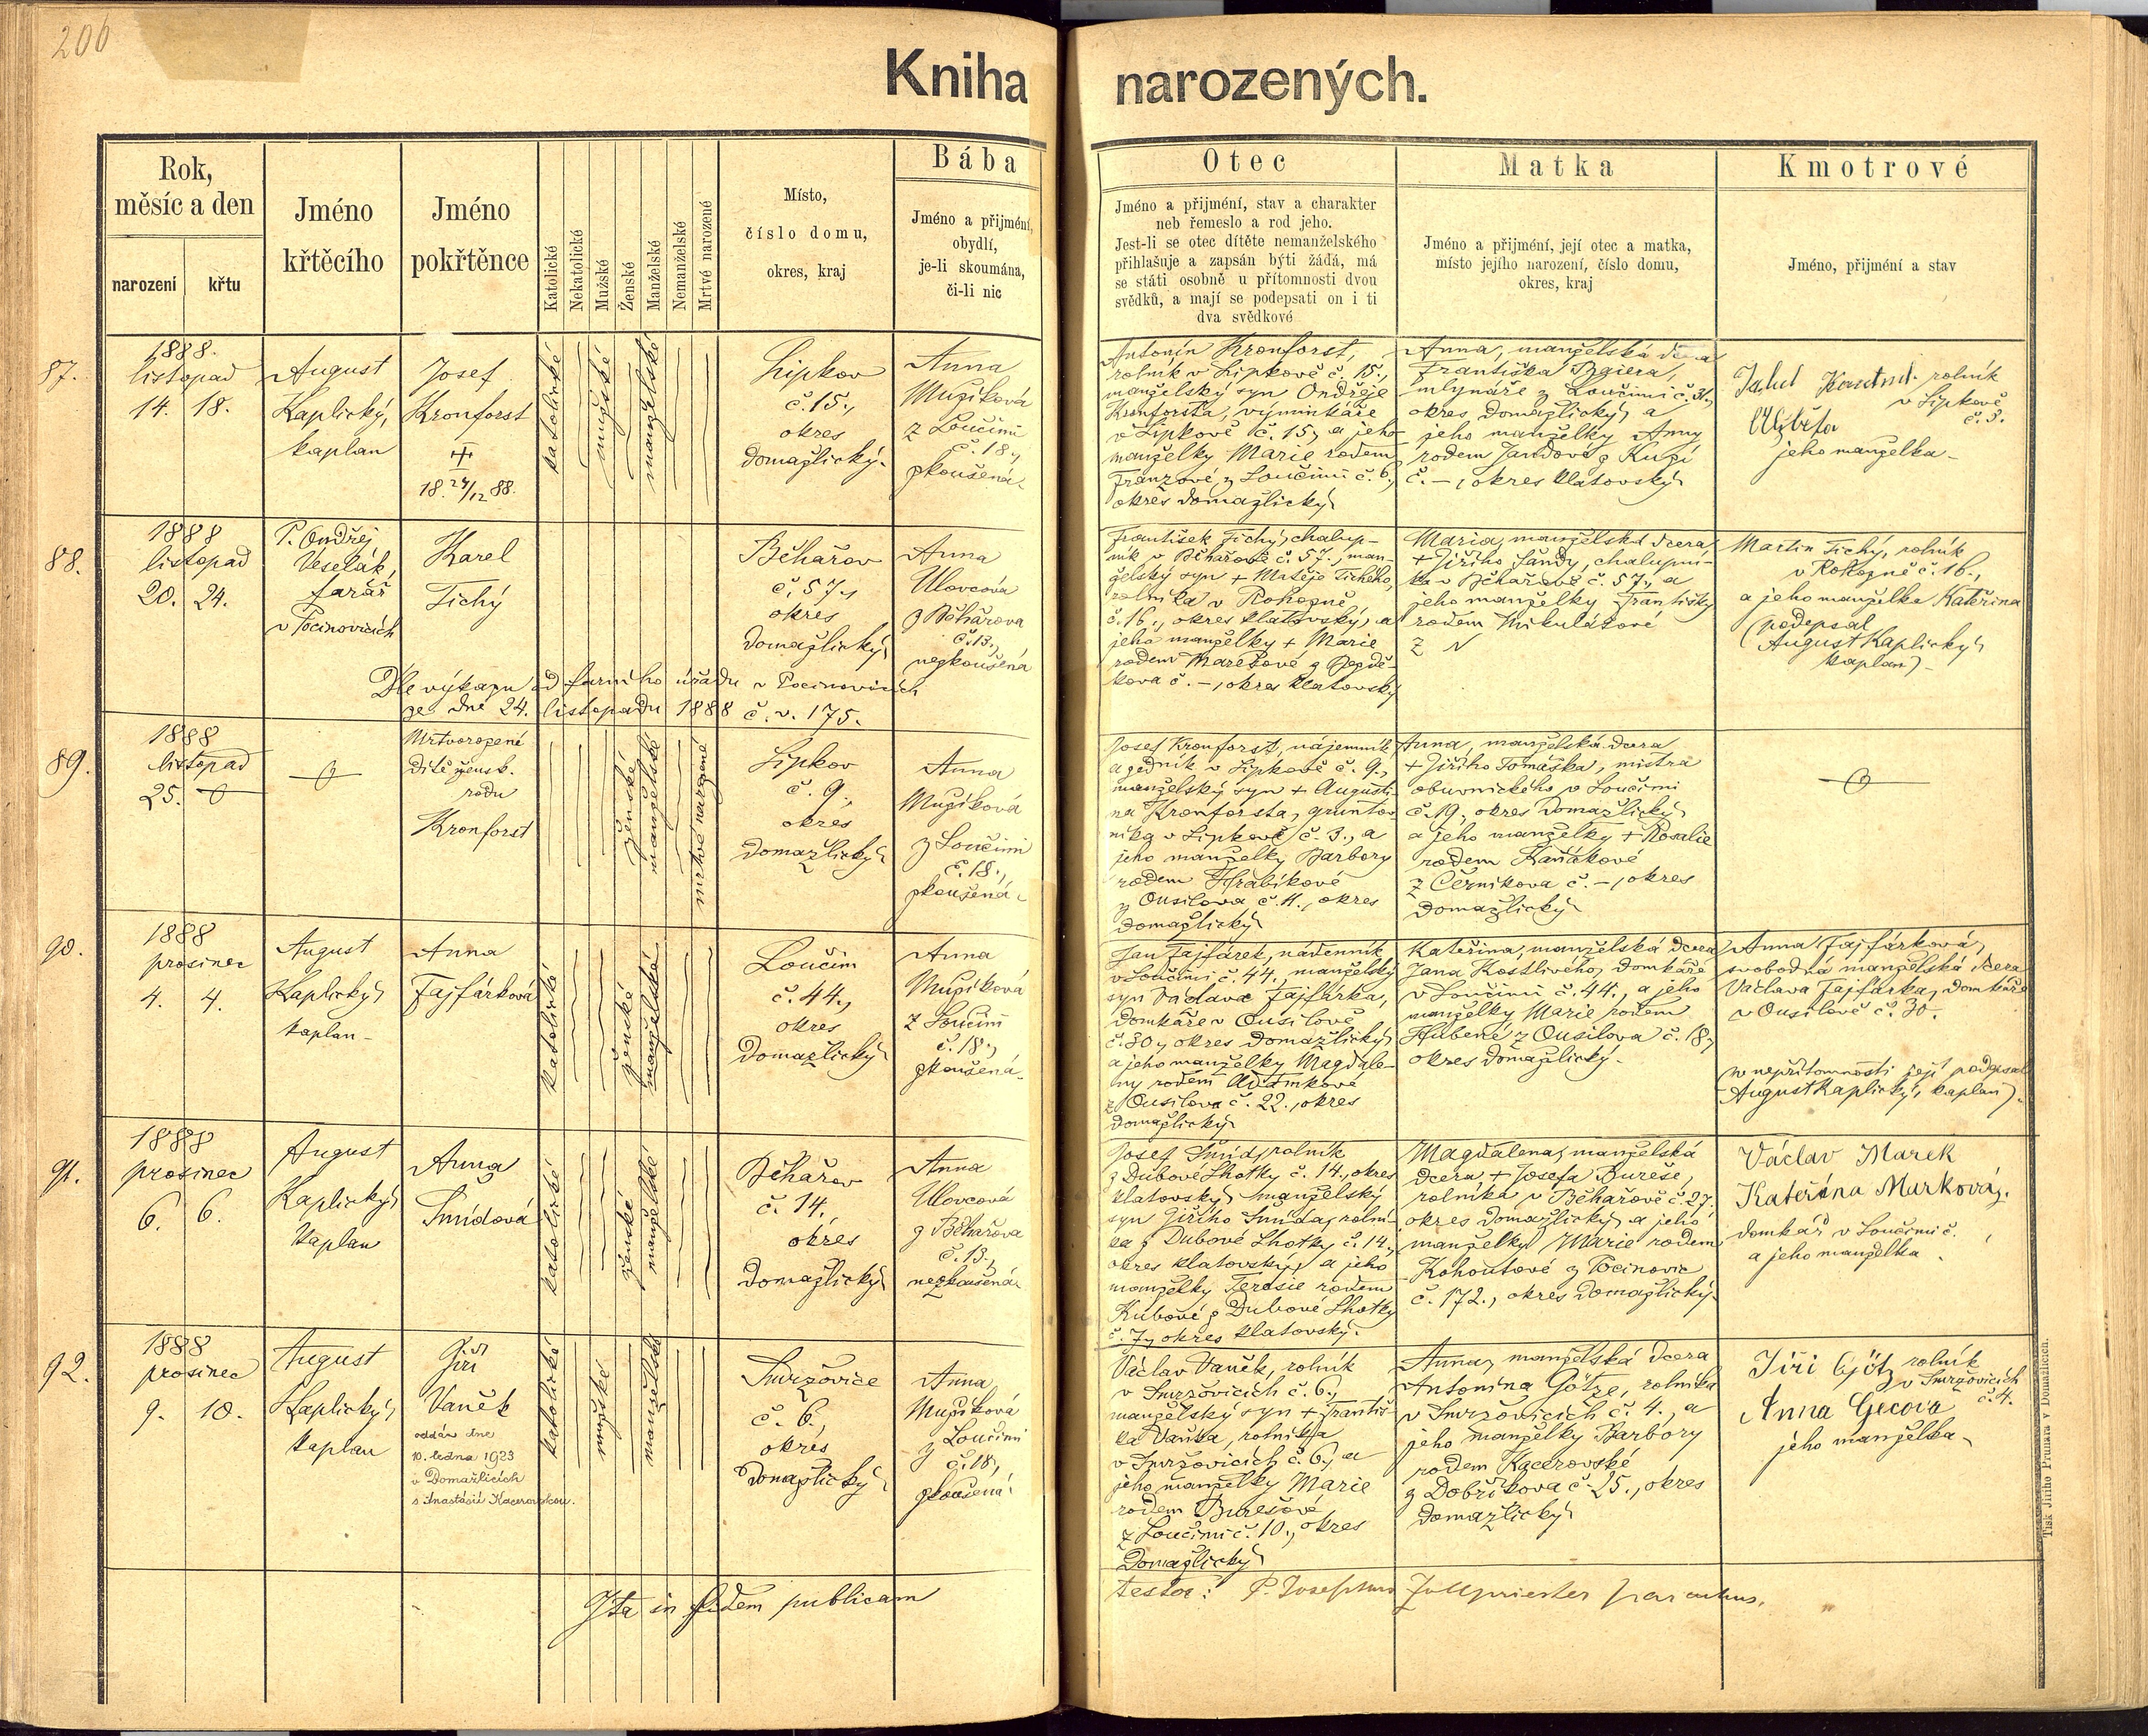 206
Kniha narozených.
Rok,
měsíc a den
narození
křtu
Jméno
křtěcího
Jméno
pokřtěnce
Katolické
Nekatolické
Mužské
Ženské
Manželské
Nemanželské
Mrtvé narozené
Místo,
číslo domu,
okres, kraj
Bába
Jméno a přijmení,
obydlí,
je-li skoumána,
či-li nic
Otec
Jméno a přijmení, stav a charakter
neb řemeslo a rod jeho.
Jest-li se otec dítěte nemanželského
přihlašuje a zapsán býti žádá, má
se státi osobně u přítomnosti dvou
svědků, a mají se podepsati on i ti
dva svědkové
Matka
Jméno a přijmení, její otec a matka,
místo jejího narození, číslo domu,
okres, kraj
Kmotrové
Jméno, přijmení a stav
87.
1888.
listopad
14. 18.
August
Kaplický,
kaplan
Josef
Kronforst
18 24/12 88.
katolické
mužské
manželské
Lipkov
č. 15.,
okres
domažlický.
Anna
Mužíková
z Loučimi
č. 18.,
zkoušená.
Antonín Kronforst,
rolník v Lipkově č. 15.,
manželský syn Ondřeje
Kronforsta, výminkáře
v Lipkově č. 15., a jeho
manželky Marie rodem
Franzové z Loučimi č. 6.,
okres domažlický
Anna, manželská dcera
Františka Baiera,
mlynáře z Loučimi č. 31.,
okres domažlický, a
jeho manželky Anny
rodem Jandové z
č. –, okres klatovský
rolník
v Lipkově
č. 3.
Alžběta
jeho manželka
88.
1888
listopad
20. 24.
P. Ondřej
Veselák,
farář
v Pocinovicích
Karel
Tichý
Běhařov
č. 57.,
okres
domažlický
Anna
Ulovcová
z Běhařova
č. 13.,
nezkoušená
Dle výkazu od farního úřadu v Pocinovicích
ze dne 24. listopadu 1888 č. v. 175.
František Tichý, chalup-
ník v Běhařově č. 57., man-
želský syn + Matěje Tichého,
rolníka v Rohozně
č. 16., okres klatovský, a
jeho manželky + Marie
rodem Marešové z
kova č. –, okres klatovský
Maria, manželská dcera
+ Jiřího Jandy, chalupní-
ka v Běhařově č. 57., a
jeho manželky Františky
rodem Mikulášové
z N
Martin Tichý, rolník
v Rohozně č. 16.,
a jeho manželka Kateřina
(podepsal
August Kaplický
kaplan)
89.
1888
listopad
25.
Mrtvorozené
dítě žensk.
rodu
Kronforst
ženské
manželské
mrtvé narozené
Lipkov
č. 9.,
okres
domažlický
Anna
Mužíková
z Loučimi
č. 18.,
zkoušená.
Josef Kronforst, nájemník
a zedník v Lipkově č. 9.,
manželský syn + Augusti-
na Kronforsta, grunto-
níka v Lipkově č. 3., a
jeho manželky Barbory
rodem Hrabíkové
z Ousilova č. 11., okres
domažlický
Anna, manželská dcera
+ Jiřího Tomáška, mistra
obuvnického v Loučimi
č. 19., okres domažlický
a jeho manželky + Rosalie
rodem Kaňákové
z Černíkova č. –, okres
domažlický
90.
1888
prosinec
4. 4.
August
Kaplický
kaplan
Anna
Fajfárková
katolické
ženské
manželské
Loučim
č. 44.,
okres
Domažlický
Anna
Mužíková
z Loučim
č. 18.,
zkoušená.
Jan Fajfárek, nádenník
v Loučimi č. 44., manželský
syn Václava Fajfárka,
domkáře v Ousilově
č. 30., okres domažlický
a jeho manželky Magdale-
ny rodem Adamkové
z Ousilova č. 22., okres
domažlický
Kateřina, manželská dcera
Jana Kostlivého, domkáře
v Loučimi č. 44., a jeho
manželky Marie rodem
Hubené z Ousilova č. 18.,
okres domažlický.
Anna Fajfárková,
svobodná manželská dcera
Václava Fajfárka, domkáře
v Ousilově č. 30.
(v nepřítomnosti její podepsal
August Kaplický, kaplan).
91.
1888
prosinec
6. 6.
August
Kaplický
kaplan
Anna
Šmídová
katolické
ženské
manželské
Běhařov
č. 14.,
okres
Domažlický
Anna
Ulovcová
z Běhařova
č. 13.,
nezkoušená.
Josef Šmíd, rolník
z Dubové Lhotky č. 14., okres
klatovský, manželský
syn Jiřího Šmída, rolní-
ka z Dubové Lhotky č. 14.,
okres klatovský, a jeho
manželky Teresie rodem
Kubové z Dubové Lhotky
č. 7., okres klatovský.
Magdalena, manželská
dcera + Josefa Bureše,
rolníka v Běhařově č. 27.,
okres domažlický, a jeho
manželky Marie rodem
Kohoutové z Pocinovic
č. 172., okres domažlický.
Václav Marek
Kateřina Marková,
domkář v Loučimi č.
a jeho manželka
92.
1888
prosinec
9. 10.
August
Kaplický
kaplan
Jiří
Vaněk
oddán dne
10. ledna 1923
v Domažlicích
s Anastásií Kacerovskou.
katolické
mužské
manželské
Smržovice
č. 6.,
okres
Domažlický
Anna
Mužíková
z Loučimi
č. 18.,
zkoušená
Václav Vaněk, rolník
v Smržovicích č. 6.,
manželský syn + Františ-
ka Vaňka, rolníka
v Smržovicích č. 6., a
jeho manželky Marie
rodem Burešové
z Loučimi č. 10., okres
Domažlický
Anna, manželská dcera
Antonína Götze, rolníka
v Smržovicích č. 4., a
jeho manželky Barbory
rodem Kacerovské
z Dobříkova č. 25., okres
domažlický
Jiří Götz rolník
v Smržovicích
č. 4.
Anna Gecova
jeho manželka
Ita in fidem publicam
testor: P. Josephus Zollpriester parochus.
Tisk Jiřího Prunara v Domažlicích.